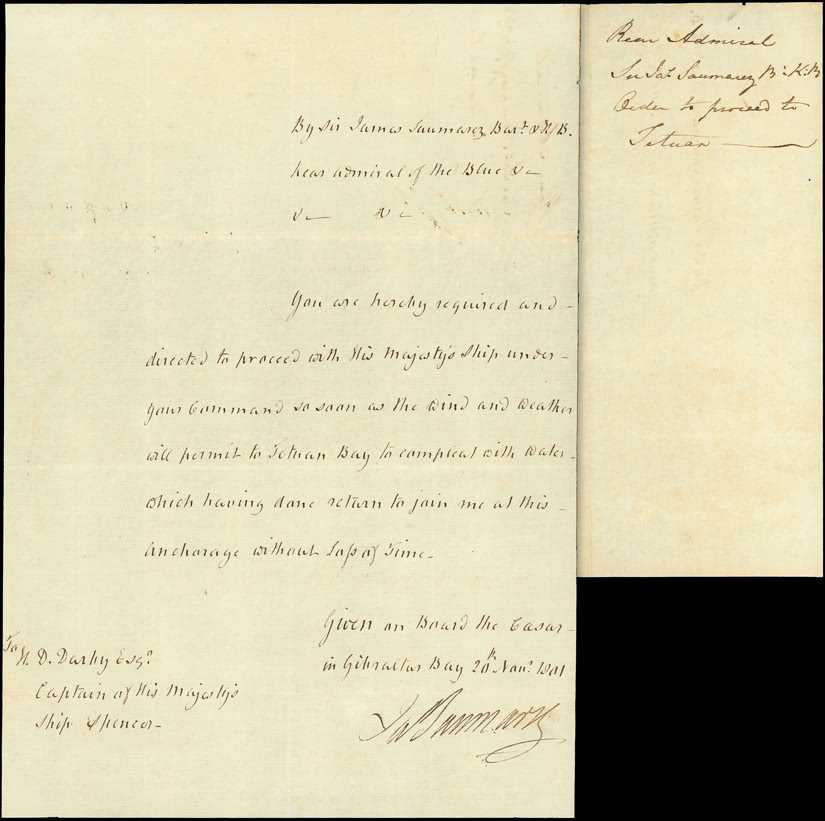 By Sir James Saumarez Bart. & K,B.
Rear admiral of the Blue &c
&c &c
You are hereby required and
directed to proceed with His Majesty's Ship under
your Command so soon as the Wind and Weather
will permit to Tetuan Bay to compleat with Water
which having done return to join me at this
Anchorage without Loss of Time
Given on Board the Cæsar
in Gibraltar Bay 20th Novr. 1801
Jas Saumarez
To
H. D. Darby Esqr.
Captain of His Majesty's
Ship Spencer
Rear Admiral
Sir Jas. Saumarez Bt. K.B
Order to proceed to
Tetuan